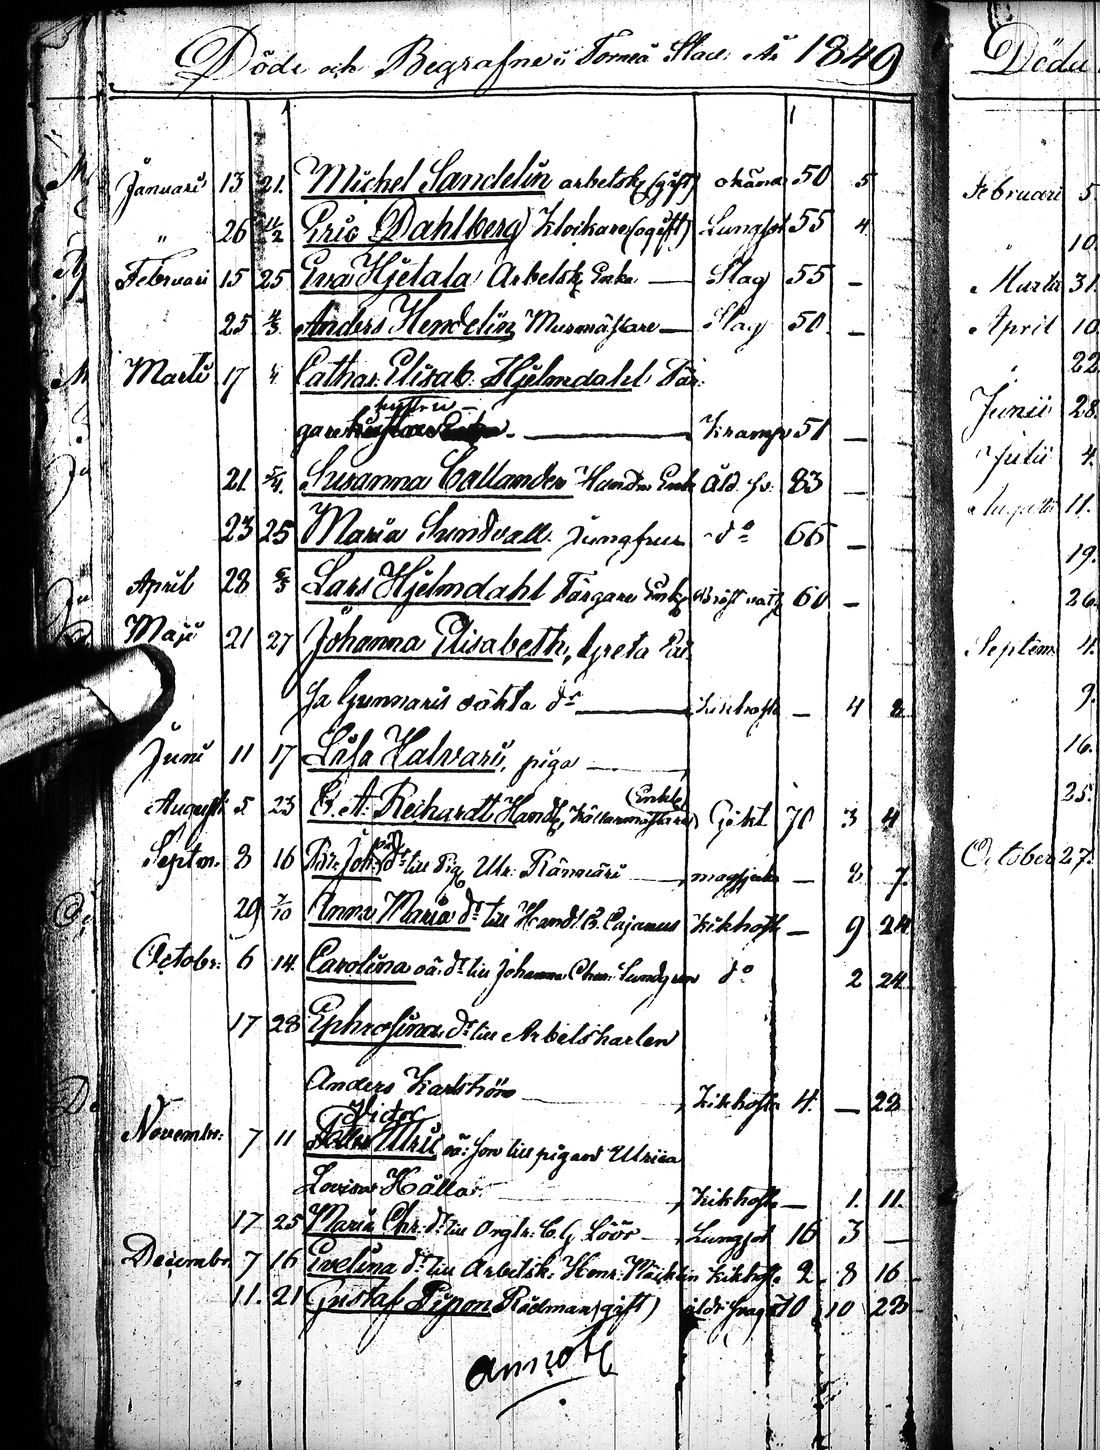 Döde och Begrafne i Torneå Stad År 1849
Januari 13 21. Michel Sandelin arbetsk (gift) okänd 50 5
" 26 11/2 Eric Dahlberg Klockare (ogift) Lungsot 55 4
Februari 15 25 Eva Hjetala Arbetsk Enka — Slag 55 —
25 4/3 Anders Hendelin Murmästare — Slag 50 —
Marti 17 Cathar. Elisab. Hjelmdahl Fär-
gare hustru — Kramp 51 —
21 5/4 Susanna Callander Handl Enk Åld. 83 —
23 25 Maria Sundvall Jungfru do 66 —
April 28 6/5 Lars Hjelmdahl Färgare Enkl 60 —
Maji 21 27 Johanna Elisabeth, Greta
Gunnaris oäkta dr — Kikhosta — 4 8
Juni 11 17 Lisa Kalvari, piga —
August 5 23 C. A. Reihardt Handl, Källarmästare (Enkl) Gikt 70 3 4
Septm. 8 16 dr till Pig Ulr. Rännäri — magsjuk — 8 7.
29 7/10 Anna Maria dr till Handl. Cajanus Kikhosta — 9 24
Octobr. 6 14 Carolina oä. dr till Johanna Char. Lundgren do 2 24
17 28 Ephrosina dr till Arbetskarlen
Anders Karlström — Kikhosta 4. — 28
Victor
Novembr. 7 11 Ulric oä: son till pigan Ulrica
Lovisa Källa — Kikhosta — 1. 11.
17 25 Maria Chr. dr till Orgln. C. G. Löör — Lungsot 16 3 —
Decembr. 7 16 Evelina dr till Arbetsk. Henr. Kikhosta 2 8 16
11. 21 Gustaf Pipon Rådman (gift) 70 10 28
Döda
Februari 5.
" 10.
Martii 31.
April 10.
22.
Junii 28.
Julii 4.
Augusti 11.
19.
26.
Septem. 4.
9.
16.
25.
October 27.